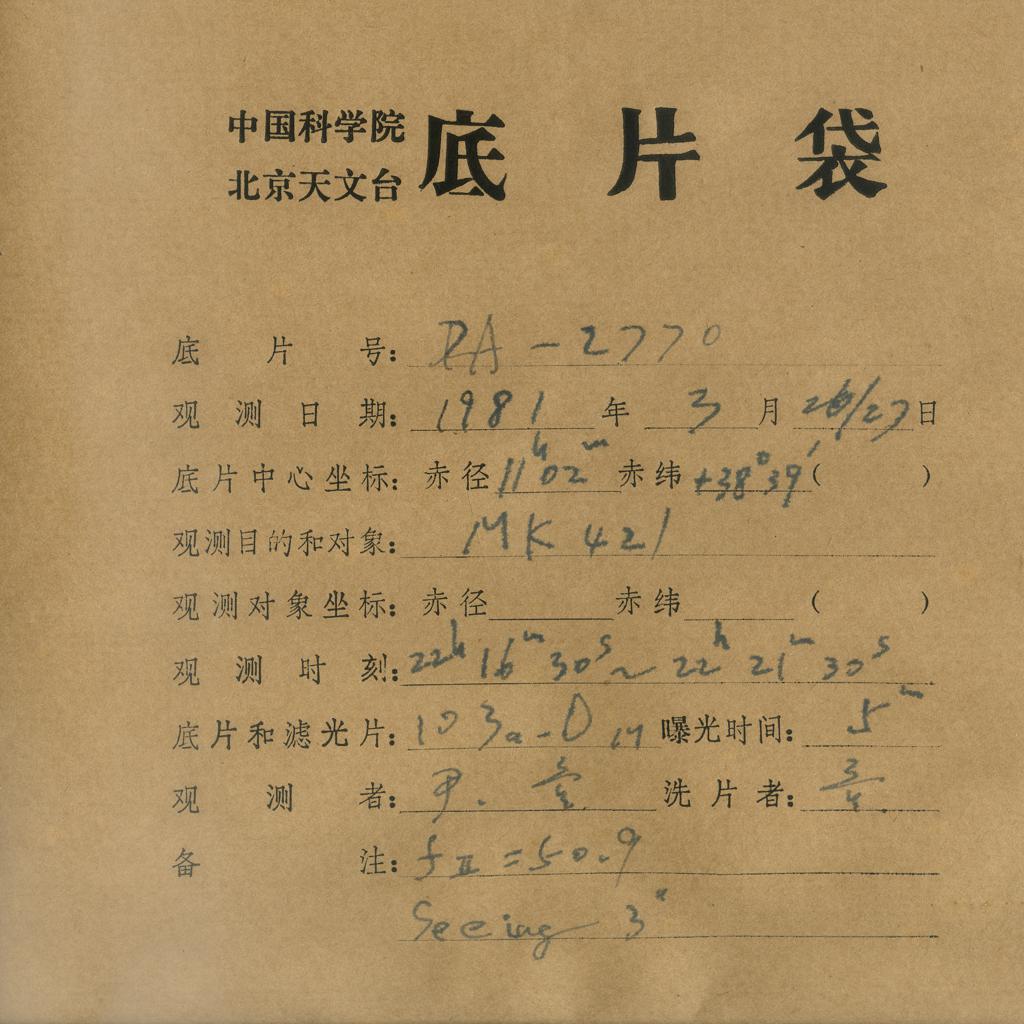 中国科学院
北京天文台
底片袋
底片号: RA-2770
观测日期: 1981年 3月 26/27日
底片中心坐标: 赤径 11h02m 赤纬 +38°39′ ( )
观测目的和对象: MK 421
观测对象坐标: 赤径 赤纬 ( )
观测时刻: 22h 16m 30s ~ 22h 21m 30s
底片和滤光片: 103a-D 曝光时间: 5m
观测者: 洗片者:
备注: fII = 50.9
Seeing 3"